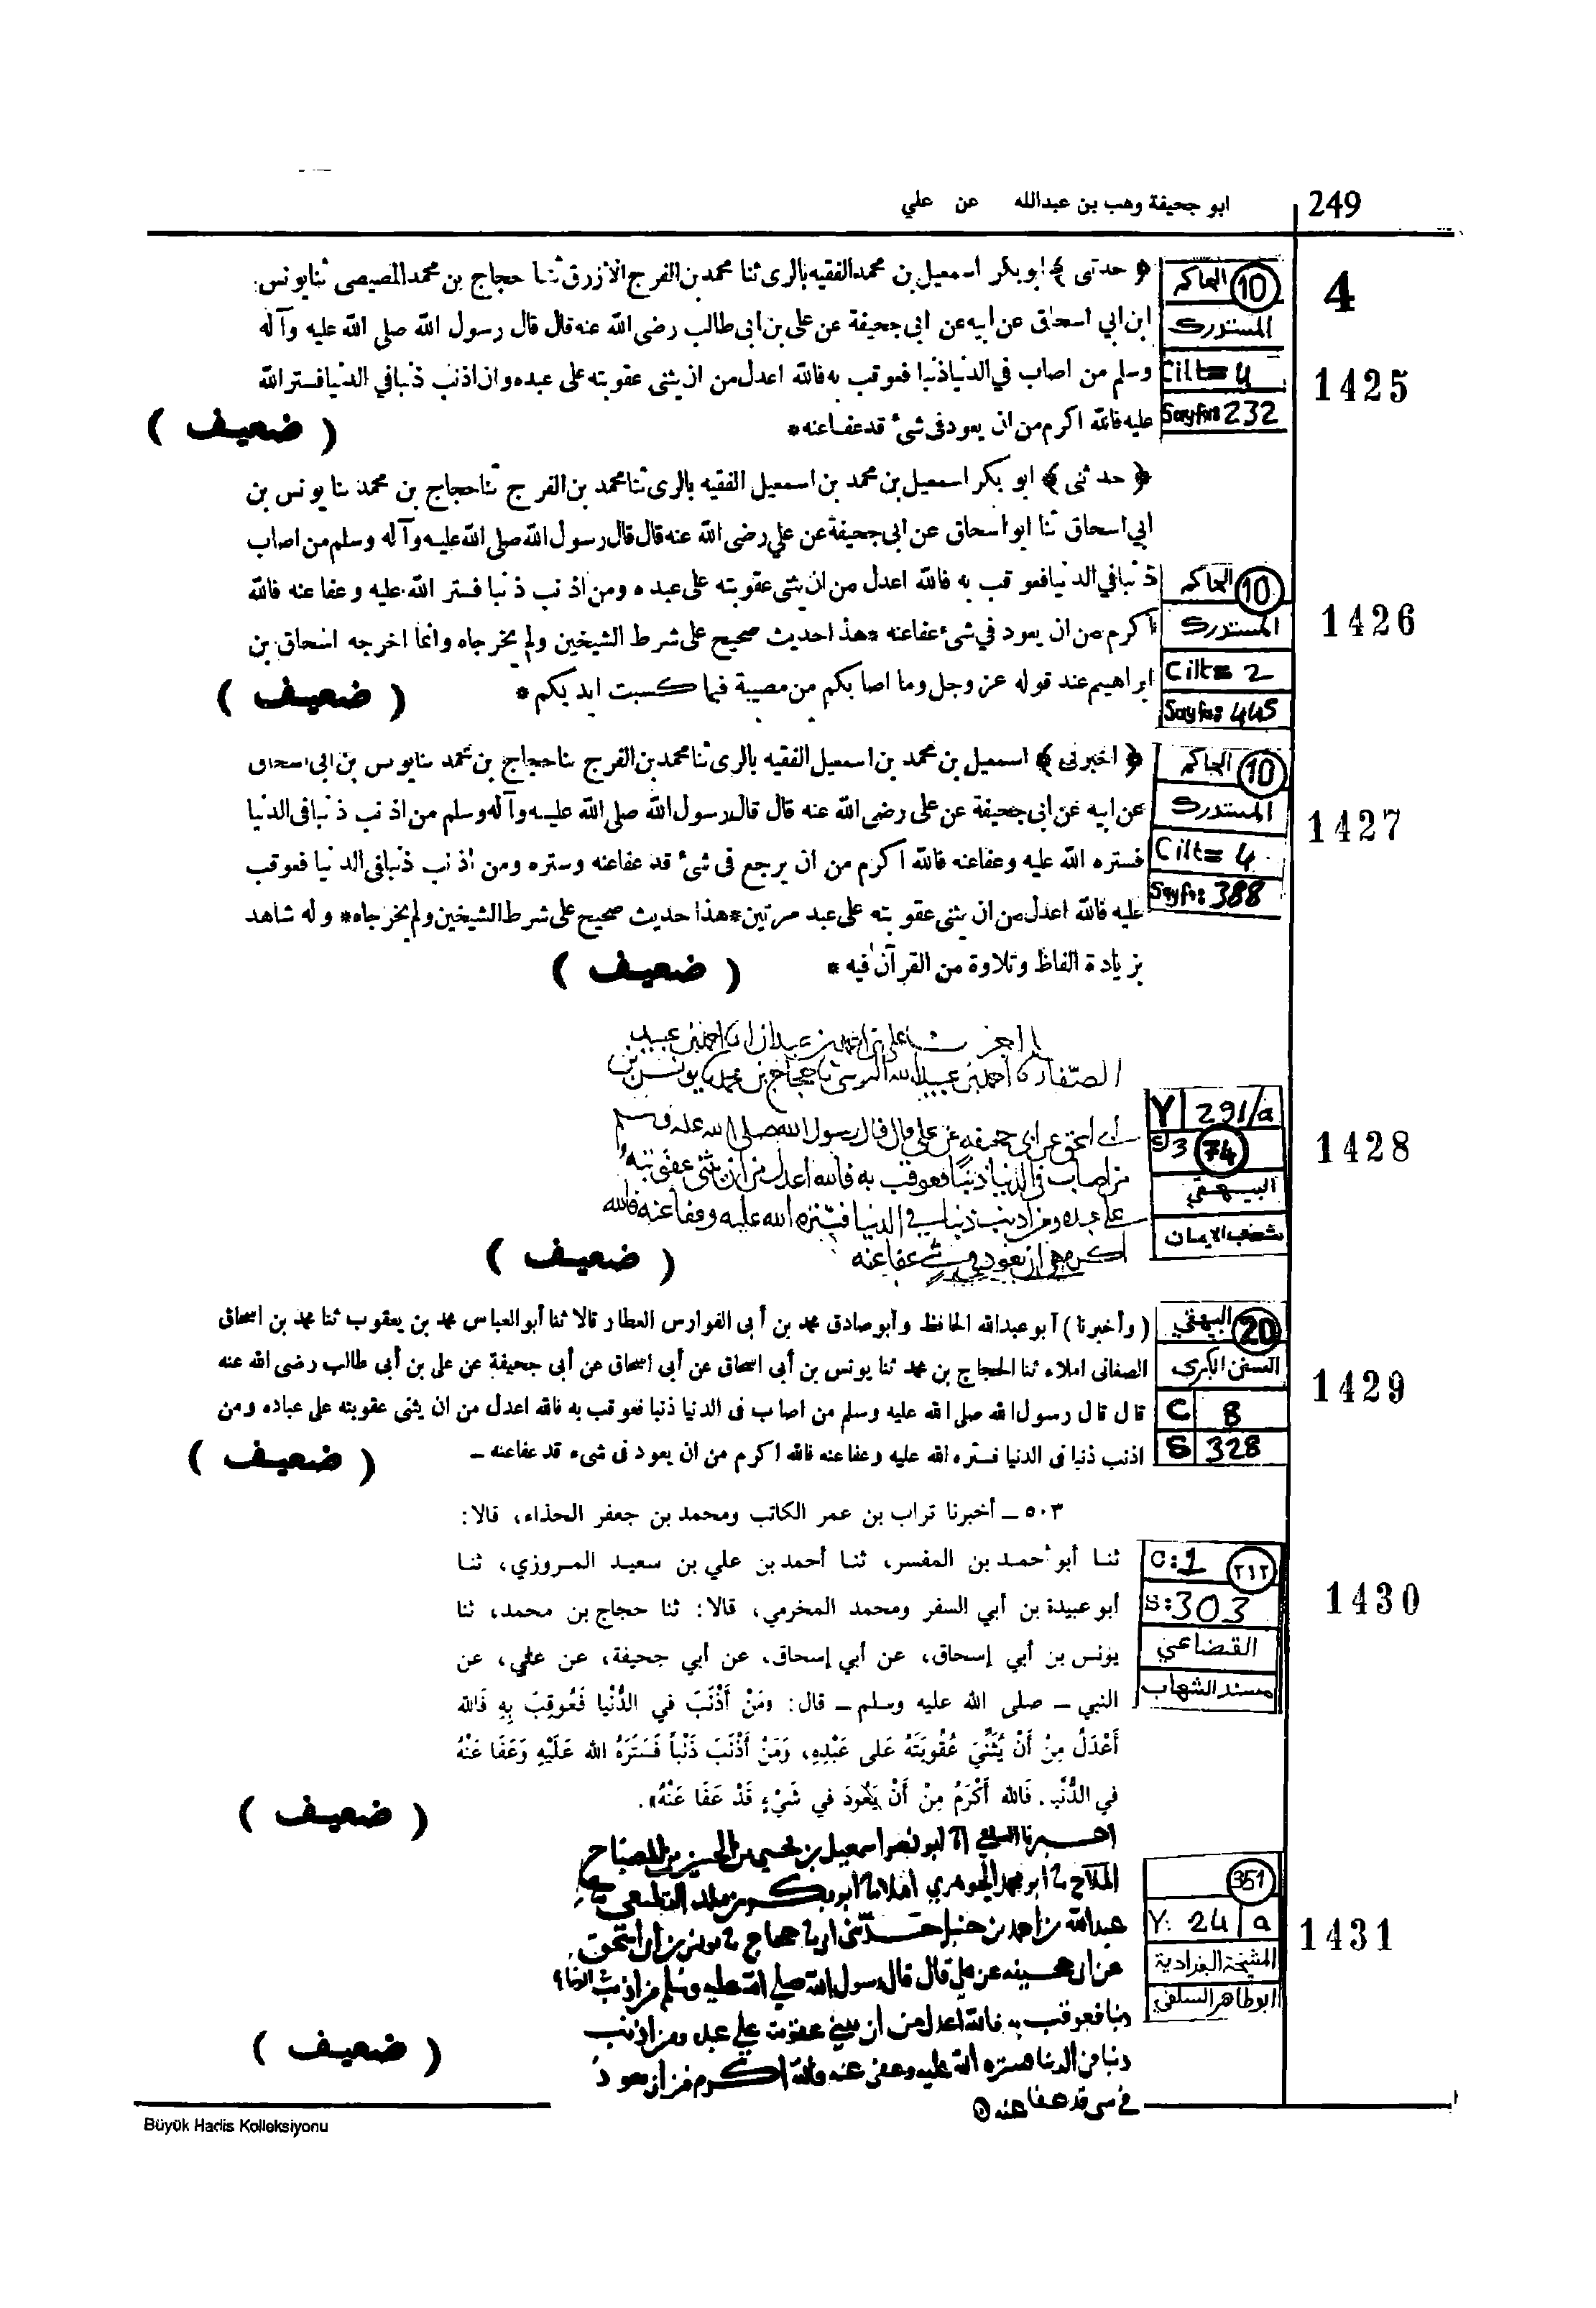 249
ابو جحيفة وهب بن عبدالله عن علي
4
1425
الحاكم 10
المستدرك
Cilt= 4
Sayfa: 232
﴿ حدثنى ﴾ ابوبكر اسمعيل بن محمد الفقيه بالرى ثنا محمد بن الفرج الازرق ثنا حجاج بن محمد المصيصى ثنا يونس
ابن ابي اسحاق عن ابيه عن ابى جحيفة عن على بن ابى طالب رضى الله عنه قال قال رسول الله صلى الله عليه وآله
وسلم من اصاب في الدنيا ذنبا فعوقب به فالله اعدل من ان يثنى عقوبته على عبده وان اذنب ذنبا في الدنيا فستر الله
عليه فالله اكرم من ان يعود فى شئ قد عفا عنه *
( ضعيف )
1426
الحاكم 10
المستدرك
Cilt= 2
Sayfa: 445
﴿ حدثنى ﴾ ابو بكر اسمعيل بن محمد بن اسمعيل الفقيه بالرى ثنا محمد بن الفرج ثنا حجاج بن محمد ثنا يونس بن
ابي اسحاق ثنا ابو اسحاق عن ابى جحيفة عن علي رضى الله عنه قال قال رسول الله صلى الله عليه وآله وسلم من اصاب
ذنبا في الدنيا فعوقب به فالله اعدل من ان يثنى عقوبته على عبده ومن اذنب ذنبا فستر الله عليه وعفا عنه فالله
اكرم من ان يعود في شئ عفا عنه * هذا حديث صحيح على شرط الشيخين ولم يخرجاه وانما اخرجه اسحاق بن
ابراهيم عند قوله عز وجل وما اصابكم من مصيبة فيما كسبت ايديكم *
( ضعيف )
1427
الحاكم 10
المستدرك
Cilt= 4
Sayfa: 388
﴿ اخبرنى ﴾ اسمعيل بن محمد بن اسمعيل الفقيه بالرى ثنا محمد بن الفرج ثنا حجاج بن محمد ثنا يونس بن ابى اسحاق
عن ابيه عن ابى جحيفة عن على رضى الله عنه قال قال رسول الله صلى الله عليه وآله وسلم من اذنب ذنبا فى الدنيا
فستره الله عليه وعفا عنه فالله اكرم من ان يرجع فى شئ قد عفا عنه وستره ومن اذنب ذنبا فى الدنيا فعوقب
عليه فالله اعدل من ان يثنى عقوبته على عبد مرتين * هذا حديث صحيح على شرط الشيخين ولم يخرجاه * وله شاهد
بزيادة الفاظ وتلاوة من القرآن فيه *
( ضعيف )
1428
Y 291/a
S/3 74
البيهقي
شعب الايمان
علي بن احمد بن عبدان احمد بن عبيد
الصفار احمد بن عبيد الله النرسي حجاج بن محمد يونس بن
ابي اسحق عن ابي جحيفه عن علي قال قال رسول الله صلى الله عليه وسلم
من اصاب في الدنيا ذنبًا فعوقب به فالله اعدل من ان يثني عقوبته
على عبده ومن اذنب ذنبا في الدنيا فستره الله عليه وعفا عنه فالله
اكرم من ان يعود في شئ عفا عنه
( ضعيف )
1429
البيهقي 20
السنن الكبرى
C 8
S 328
( وأخبرنا ) أبو عبدالله الحافظ وأبو صادق محمد بن أبى الفوارس العطار قالا ثنا أبو العباس محمد بن يعقوب ثنا محمد بن اسحاق
الصغانى املاء ثنا الحجاج بن محمد ثنا يونس بن أبى اسحاق عن أبى اسحاق عن أبى جحيفة عن على بن أبى طالب رضى الله عنه
قال قال رسول الله صلى الله عليه وسلم من اصاب فى الدنيا ذنبا فعوقب به فالله اعدل من ان يثنى عقوبته على عباده ومن
اذنب ذنبا فى الدنيا فستره الله عليه وعفا عنه فالله اكرم من ان يعود فى شىء قد عفا عنه -
( ضعيف )
1430
C:1 ٢١٢
S:303
القضاعي
مسند الشهاب
٥٠٣ - أخبرنا تراب بن عمر الكاتب ومحمد بن جعفر الحذاء، قالا:
ثنا أبو أحمد بن المفسر، ثنا أحمد بن علي بن سعيد المروزي، ثنا
أبو عبيدة بن أبي السفر ومحمد المخرمي، قالا: ثنا حجاج بن محمد، ثنا
يونس بن أبي إسحاق، عن أبي إسحاق، عن أبي جحيفة، عن علي، عن
النبي - صلى الله عليه وسلم - قال: ومَنْ أَذْنَبَ في الدُّنْيا فَعُوقِبَ بِهِ فَالله
أَعْدَلُ مِنْ أَنْ يُثَنِّيَ عُقُوبَتَهُ عَلى عَبْدِهِ، وَمَنْ أَذْنَبَ ذَنْباً فَسَتَرَهُ الله عَلَيْهِ وَعَفَا عَنْهُ
في الدُّنْيَا، فَالله أَكْرَمُ مِنْ أَنْ يَعُودَ في شَيْءٍ قَدْ عَفَا عَنْهُ».
( ضعيف )
1431
351
Y: 24 a
المشيخة البغدادية
ابو طاهر السلفي
ابو نصر اسمعيل بن الحسين
الملاح ابو محمد الجوهري املا ابو بكر القطيعي
عبدالله بن احمد بن حنبل حدثني ابي حجاج يونس بن ابي اسحق
عن ابي جحيفه عن علي قال قال رسول الله صلى الله عليه وسلم من اذنب في الدنيا
ذنبا فعوقب به فالله اعدل من ان يثني عقوبته علي عبده ومن اذنب
ذنبا في الدنيا فستره الله عليه وعفى عنه فالله اكرم من ان يعود
في شي قد عفا عنه
( ضعيف )
Büyük Hadis Kolleksiyonu